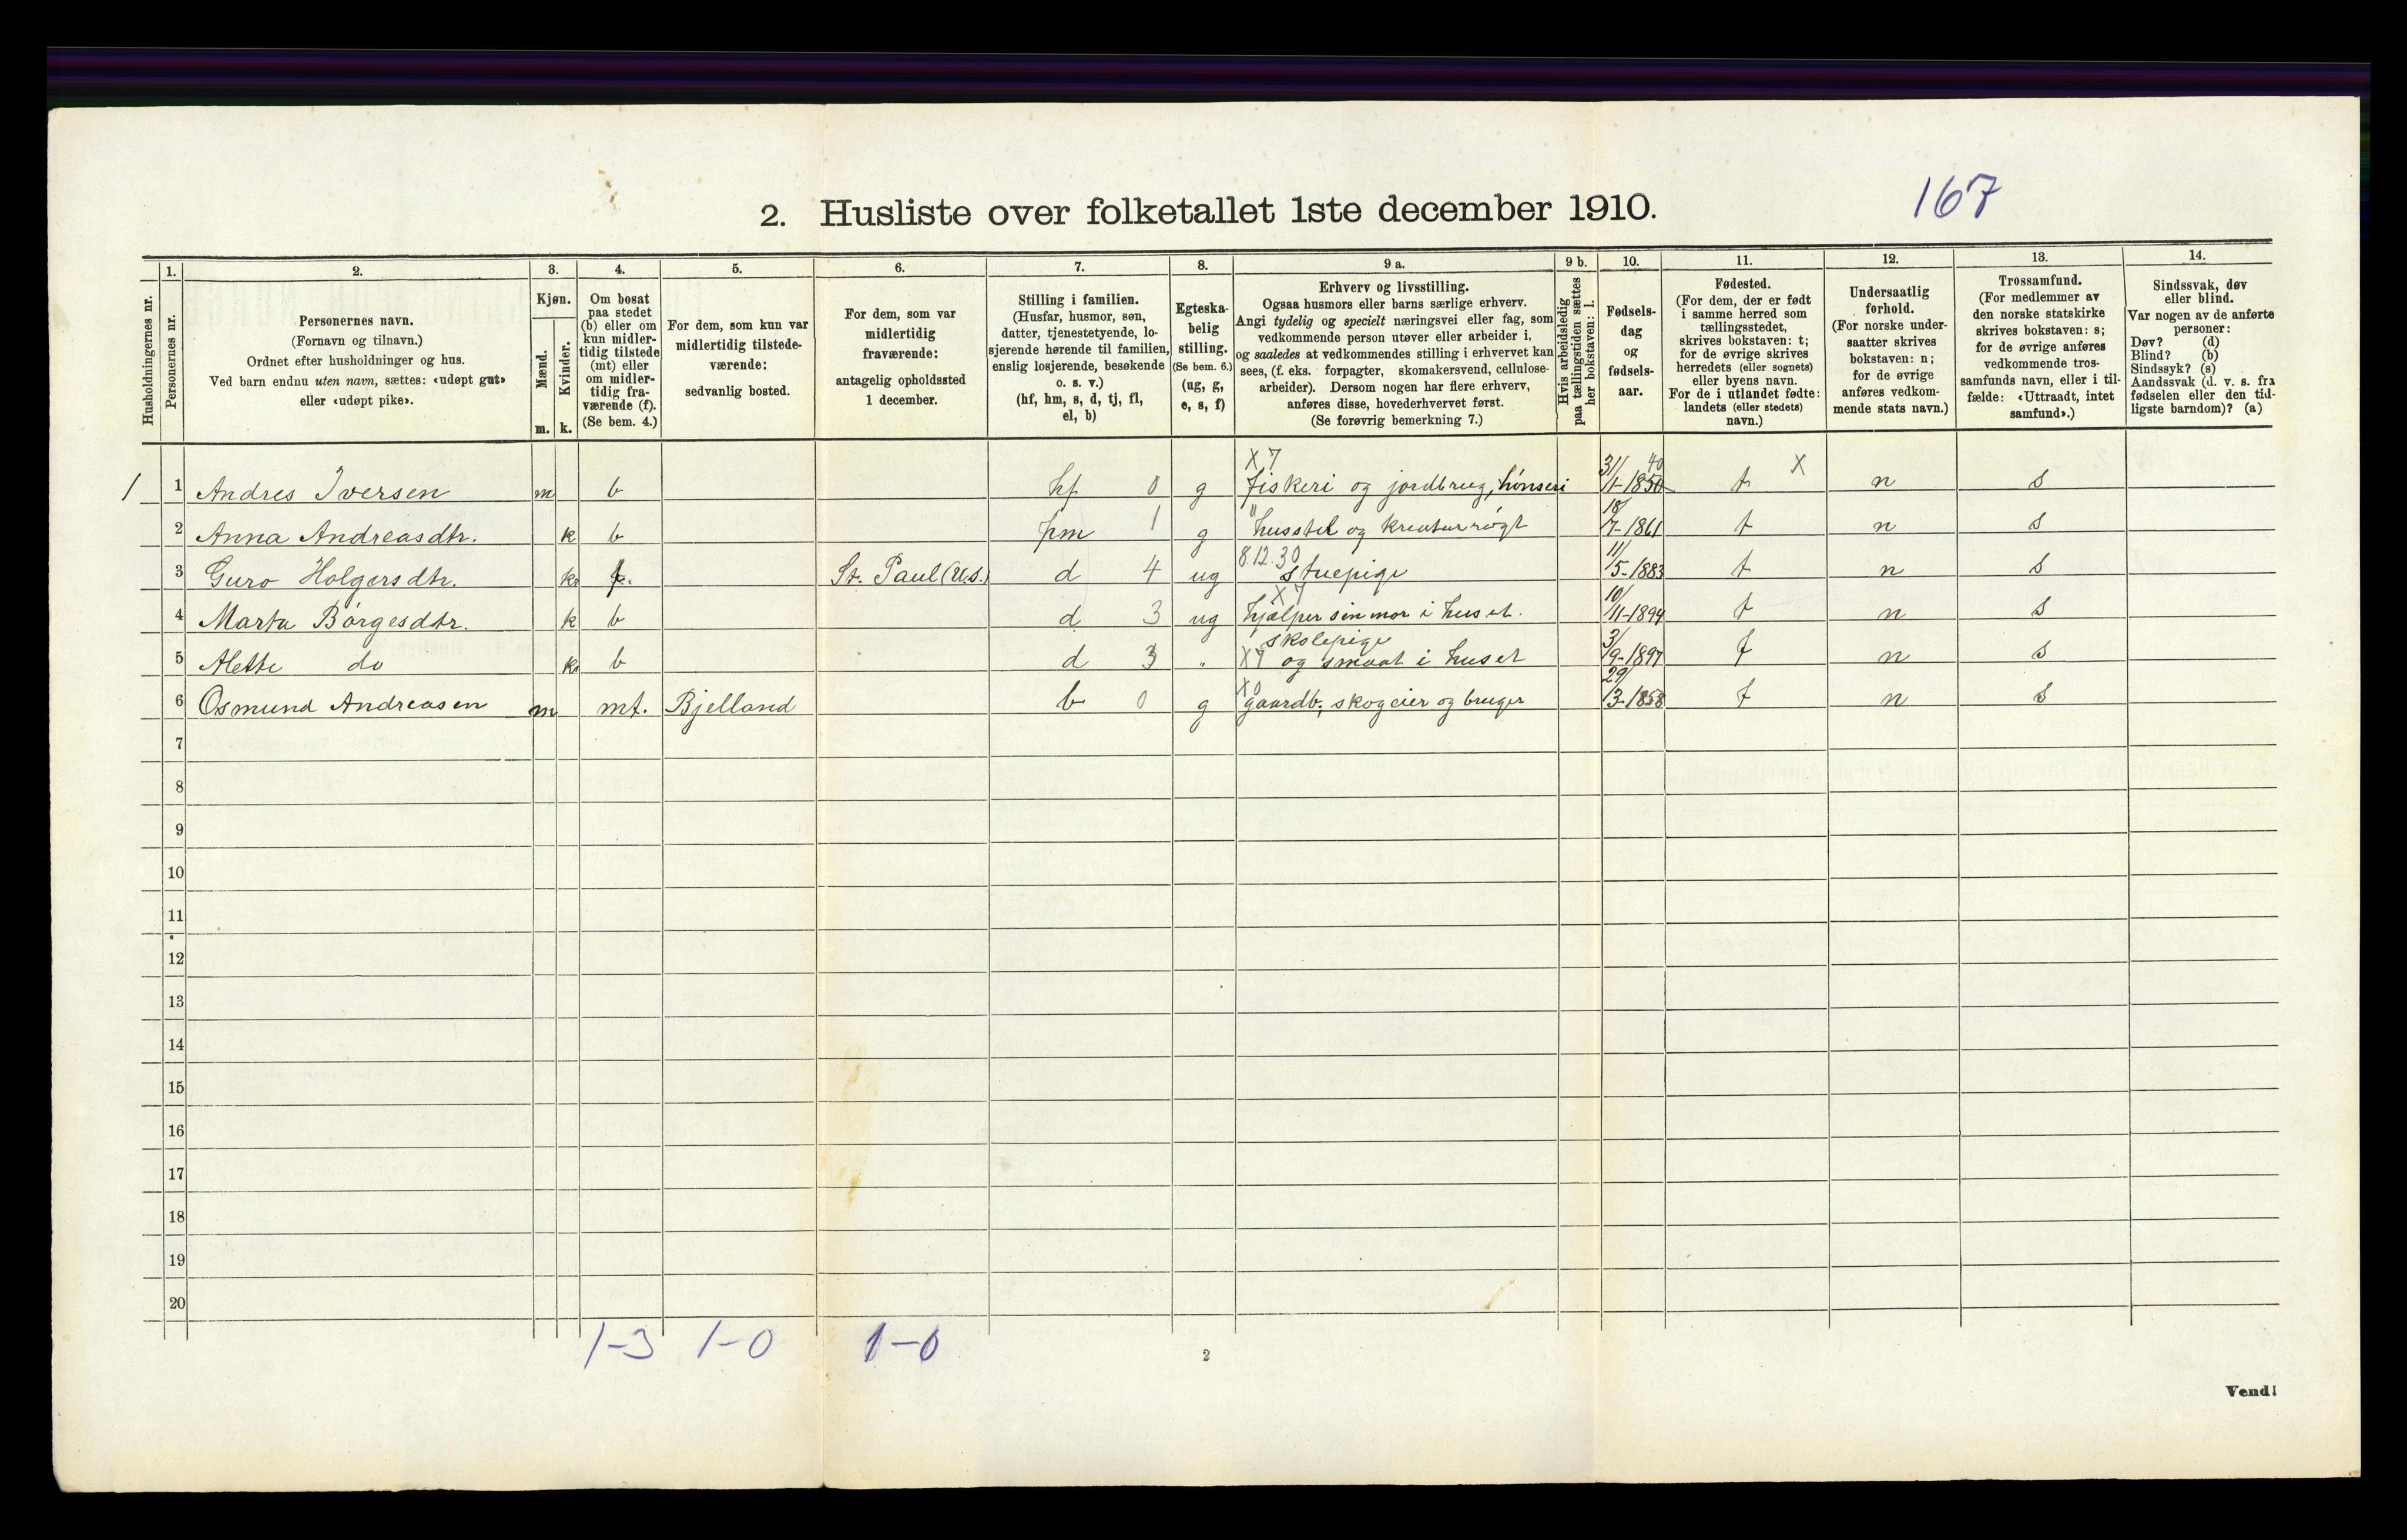 167
2. Husliste over folketallet 1ste december 1910.
Husholdningernes nr.
1.
Personernes nr.
2.
Personernes navn.
(Fornavn og tilnavn.)
Ordnet efter husholdninger og hus.
Ved barn endnu uten navn, sættes: «udøpt gut»
eller «udøpt pike».
3.
Kjøn.
Mænd.
Kvinder.
m. k.
4.
Om bosat
paa stedet
(b) eller om
kun midler-
tidig tilstede
(mt) eller
om midler-
tidig fra-
værende (f).
(Se bem. 4.)
5.
For dem, som kun var
midlertidig tilstede-
værende:
sedvanlig bosted.
6.
For dem, som var
midlertidig
fraværende:
antagelig opholdssted
1 december.
7.
Stilling i familien.
(Husfar, husmor, søn,
datter, tjenestetyende, lo-
sjerende hørende til familien,
enslig losjerende, besøkende
o. s. v.)
(hf, hm, s, d, tj, fl,
el, b)
8.
Egteska-
belig
stilling.
(Se bem. 6.)
(ug, g,
e, s, f)
9 a.
Erhverv og livsstilling.
Ogsaa husmors eller barns særlige erhverv.
Angi tydelig og specielt næringsvei eller fag, som
vedkommende person utøver eller arbeider i,
og saaledes at vedkommendes stilling i erhvervet kan
sees, (f. eks. forpagter, skomakersvend, cellulose-
arbeider). Dersom nogen har flere erhverv,
anføres disse, hovederhvervet først.
(Se forøvrig bemerkning 7.)
9 b.
Hvis arbeidsledig
paa tællingstiden sættes
her bokstaven: l.
10.
Fødsels-
dag
og
fødsels-
aar.
11.
Fødested.
(For dem, der er født
i samme herred som
tællingsstedet,
skrives bokstaven: t;
for de øvrige skrives
herredets (eller sognets)
eller byens navn.
For de i utlandet fødte:
landets (eller stedets)
navn.)
12.
Undersaatlig
forhold.
(For norske under-
saatter skrives
bokstaven: n;
for de øvrige
anføres vedkom-
mende stats navn.)
13.
Trossamfund.
(For medlemmer av
den norske statskirke
skrives bokstaven: s;
for de øvrige anføres
vedkommende tros-
samfunds navn, eller i til-
fælde: «Uttraadt, intet
samfund».)
14.
Sindssvak, døv
eller blind.
Var nogen av de anførte
personer:
Døv? (d)
Blind? (b)
Sindssyk? (s)
Aandssvak (d. v. s. fra
fødselen eller den tid-
ligste barndom)? (a)
X 7
1 1 Andres Iversen m b hf 0 g fiskeri og jordbrug, hønseri 31/1-1850 40 t X n s
2 Anna Andreasdtr. k b hm 1 g " husstel og kreaturrøgt 18/7-1861 t n s
8.12.30
3 Guro Holgersdtr. k f. St. Paul (U.S.) d 4 ug stuepige 11/5-1883 t n s
X 7
4 Marta Børgesdtr. k b d 3 ug hjælper sin mor i huset. 10/11-1894 t n s
skolepige
5 Alette do k b d 3 " X 7 og smaat i huset 3/9-1897 t n s
X 0
6 Osmund Andreasen m mt. Bjelland b 0 g gaardb, skogeier og bruger 29/3-1858 t n s
7
8
9
10
11
12
13
14
15
16
17
18
19
20
1-3 1-0 1-0
2
Vend!